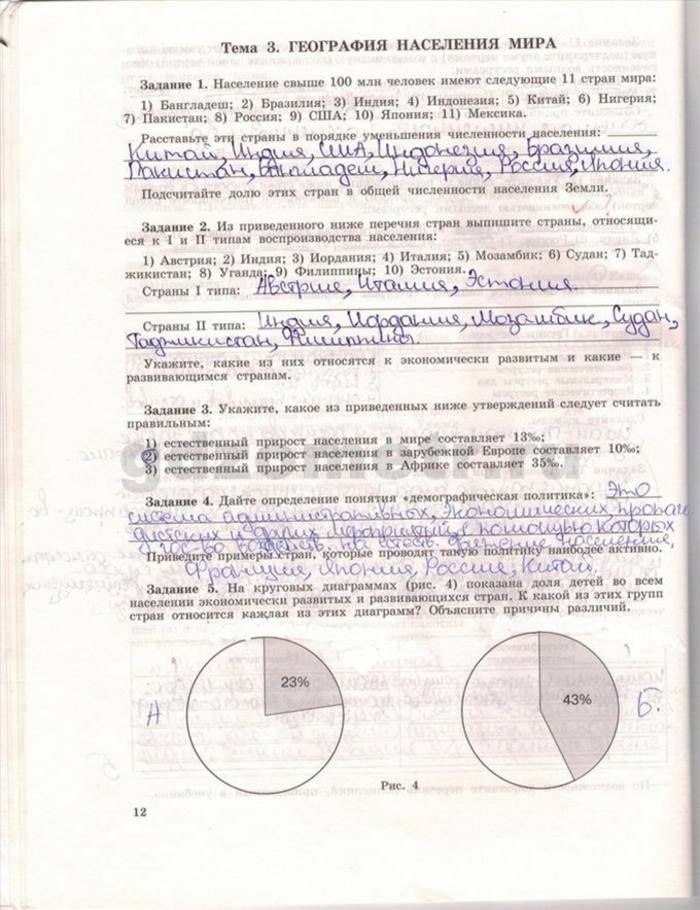 Тема 3. ГЕОГРАФИЯ НАСЕЛЕНИЯ МИРА
Задание 1. Население свыше 100 млн человек имеют следующие 11 стран мира:
1) Бангладеш; 2) Бразилия; 3) Индия; 4) Индонезия; 5) Китай; 6) Нигерия;
7) Пакистан; 8) Россия; 9) США; 10) Япония; 11) Мексика.
Расставьте эти страны в порядке уменьшения численности населения:
Китай, Индия, США, Индонезия, Бразилия,
Пакистан, Бангладеш, Нигерия, Россия, Япония.
Подсчитайте долю этих стран в общей численности населения Земли.
Задание 2. Из приведенного ниже перечня стран выпишите страны, относящи-
еся к I и II типам воспроизводства населения:
1) Австрия; 2) Индия; 3) Иордания; 4) Италия; 5) Мозамбик; 6) Судан; 7) Тад-
жикистан; 8) Уганда; 9) Филиппины; 10) Эстония.
Страны I типа: Австрия, Италия, Эстония.
Страны II типа: Индия, Иордания, Мозамбик, Судан,
Таджикистан, Филиппины.
Укажите, какие из них относятся к экономически развитым и какие — к
развивающимся странам.
Задание 3. Укажите, какое из приведенных ниже утверждений следует считать
правильным:
1) естественный прирост населения в мире составляет 13‰;
2) естественный прирост населения в зарубежной Европе составляет 10‰;
3) естественный прирост населения в Африке составляет 35‰.
Задание 4. Дайте определение понятия «демографическая политика»: Это
система административных, экономических, пропаган
дистских и других мероприятий с помощью которых
гос-во воздейств. на естеств. движение населения,
Приведите примеры стран, которые проводят такую политику наиболее активно.
Франция, Япония, Россия, Китай.
Задание 5. На круговых диаграммах (рис. 4) показана доля детей во всем
населении экономически развитых и развивающихся стран. К какой из этих групп
стран относится каждая из этих диаграмм? Объясните причины различий.
23%
43%
А
Б.
Рис. 4
12